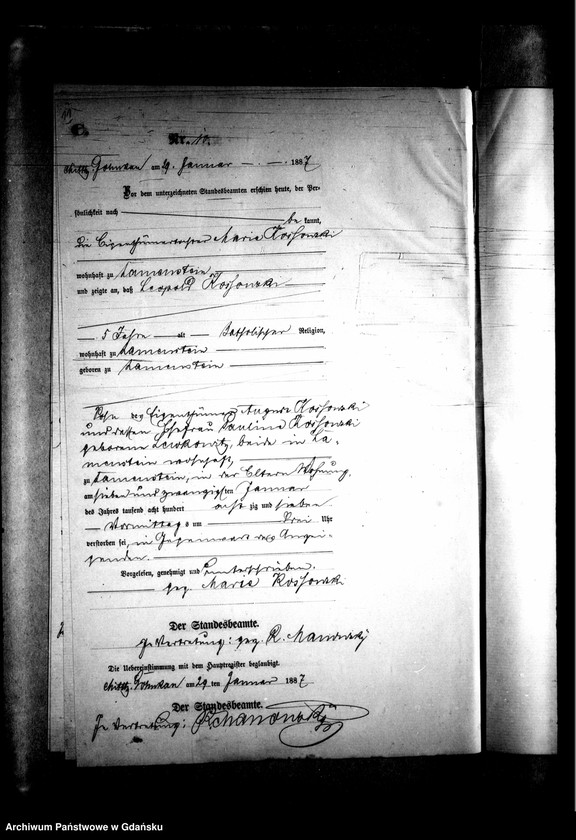 Nr. 10.
Gohnkau am 29. Januar 1887
Vor dem unterzeichneten Standesbeamten erschien heute, der Per-
sönlichkeit nach
be kannt,
die Eigenthümertochter Maria Kossowski
wohnhaft zu Lamenstein
und zeigte an, daß Leopold Kossowski
5 Jahre alt Katholischer Religion,
wohnhaft zu Lamenstein
geboren zu Lamenstein
Sohn des Eigenthümers August Kossowski
und dessen Ehefrau Paulina Kossowski
geborene Lewkowitz, beide in La-
menstein wohnhaft,
zu Lamenstein, in der Eltern Wohnung,
am sieben und zwanzigsten Januar
des Jahres tausend acht hundert acht zig und sieben
Vormittag s um drei Uhr
verstorben sei, in Gegenwart des Anzei-
genden.
Vorgelesen, genehmigt und unterschrieben.
gez. Maria Kossowski
Der Standesbeamte.
In Vertretung: gez. R. Manowski
Die Uebereinstimmung mit dem Hauptregister beglaubigt.
Gohnkau am 29 ten Januar 1887.
Der Standesbeamte.
In Vertretung: R. Manowski
Archiwum Państwowe w Gdańsku